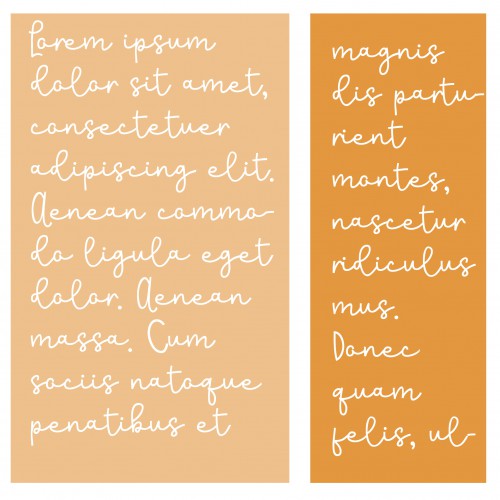 Lorem ipsum
dolor sit amet,
consectetuer
adipiscing elit.
Aenean commo-
do ligula eget
dolor. Aenean
massa. Cum
sociis natoque
penatibus et
magnis
dis partu-
rient
montes,
nascetur
ridiculus
mus.
Donec
quam
felis, ul-